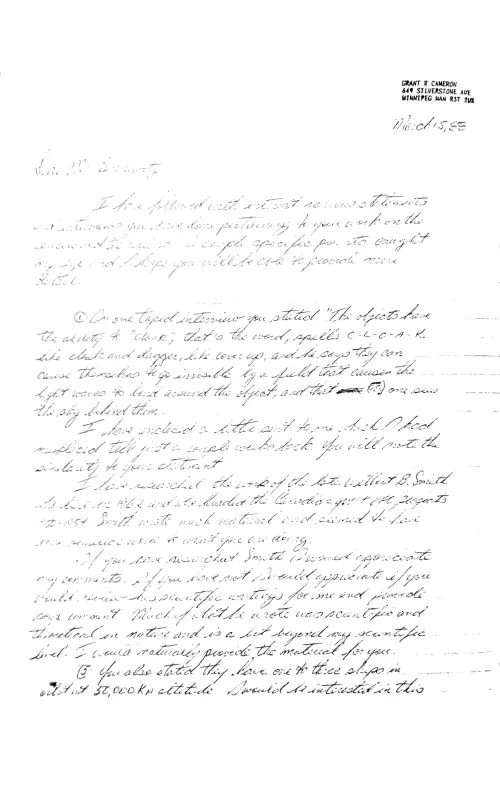 GRANT R CAMERON
649 SILVERSTONE AVE
WINNIPEG MAN R3T 2V8
March 15, 88
Dear Mr.
I have followed with interest various statements
and interviews you have done pertaining to your work on the
a couple specific points caught
my eye and I hope you will be able to provide more
detail.
① In one taped interview you stated "The objects have
the ability to "cloak", that is the word, spells C-L-O-A-K.
like cloak and dagger, like cover up, and he says they can
cause themselves to go invisible by a field that causes the
light waves to bend around the object, and that one sees
the sky behind them.
I have enclosed a letter sent to me which I had
misplaced till just a couple weeks back. You will note the
similarity to your statement
I have researched the work of the late Wilbert B. Smith
who died in 1962 and who headed the Canadian gov't UFO projects
-1954 Smith wrote much material and seemed to have
work to what you are doing.
If you have researched Smith I would appreciate
any comments. If you have not I would appreciate if you
would review his scientific writings for me and provide
comment Much of what he wrote was scientific and
theoretical in nature and is a bit beyond my scientific
level. I would naturally provide the material for you.
② You also stated they have one to three ships in
orbit at 50,000 KM altitude I would be interested in this